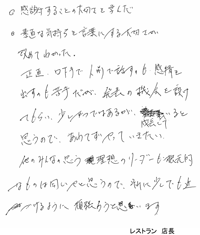 ○ 感謝することの大切さを学んだ
○ 素直な気持ちを言葉にする大切さが
改めてわかった。
正直、口下手で人前で話すのも感情を
出すのも苦手だが、発表の機会を設け
てもらい、少しかわってはあるが、成長していると
思うので、あわてずやっていきたい。
他のみんなの思う理想のリーダーも根元的
なものは同じだと思うので、私に少しでも近
づけるように頑張ろうと思います
レストラン 店長